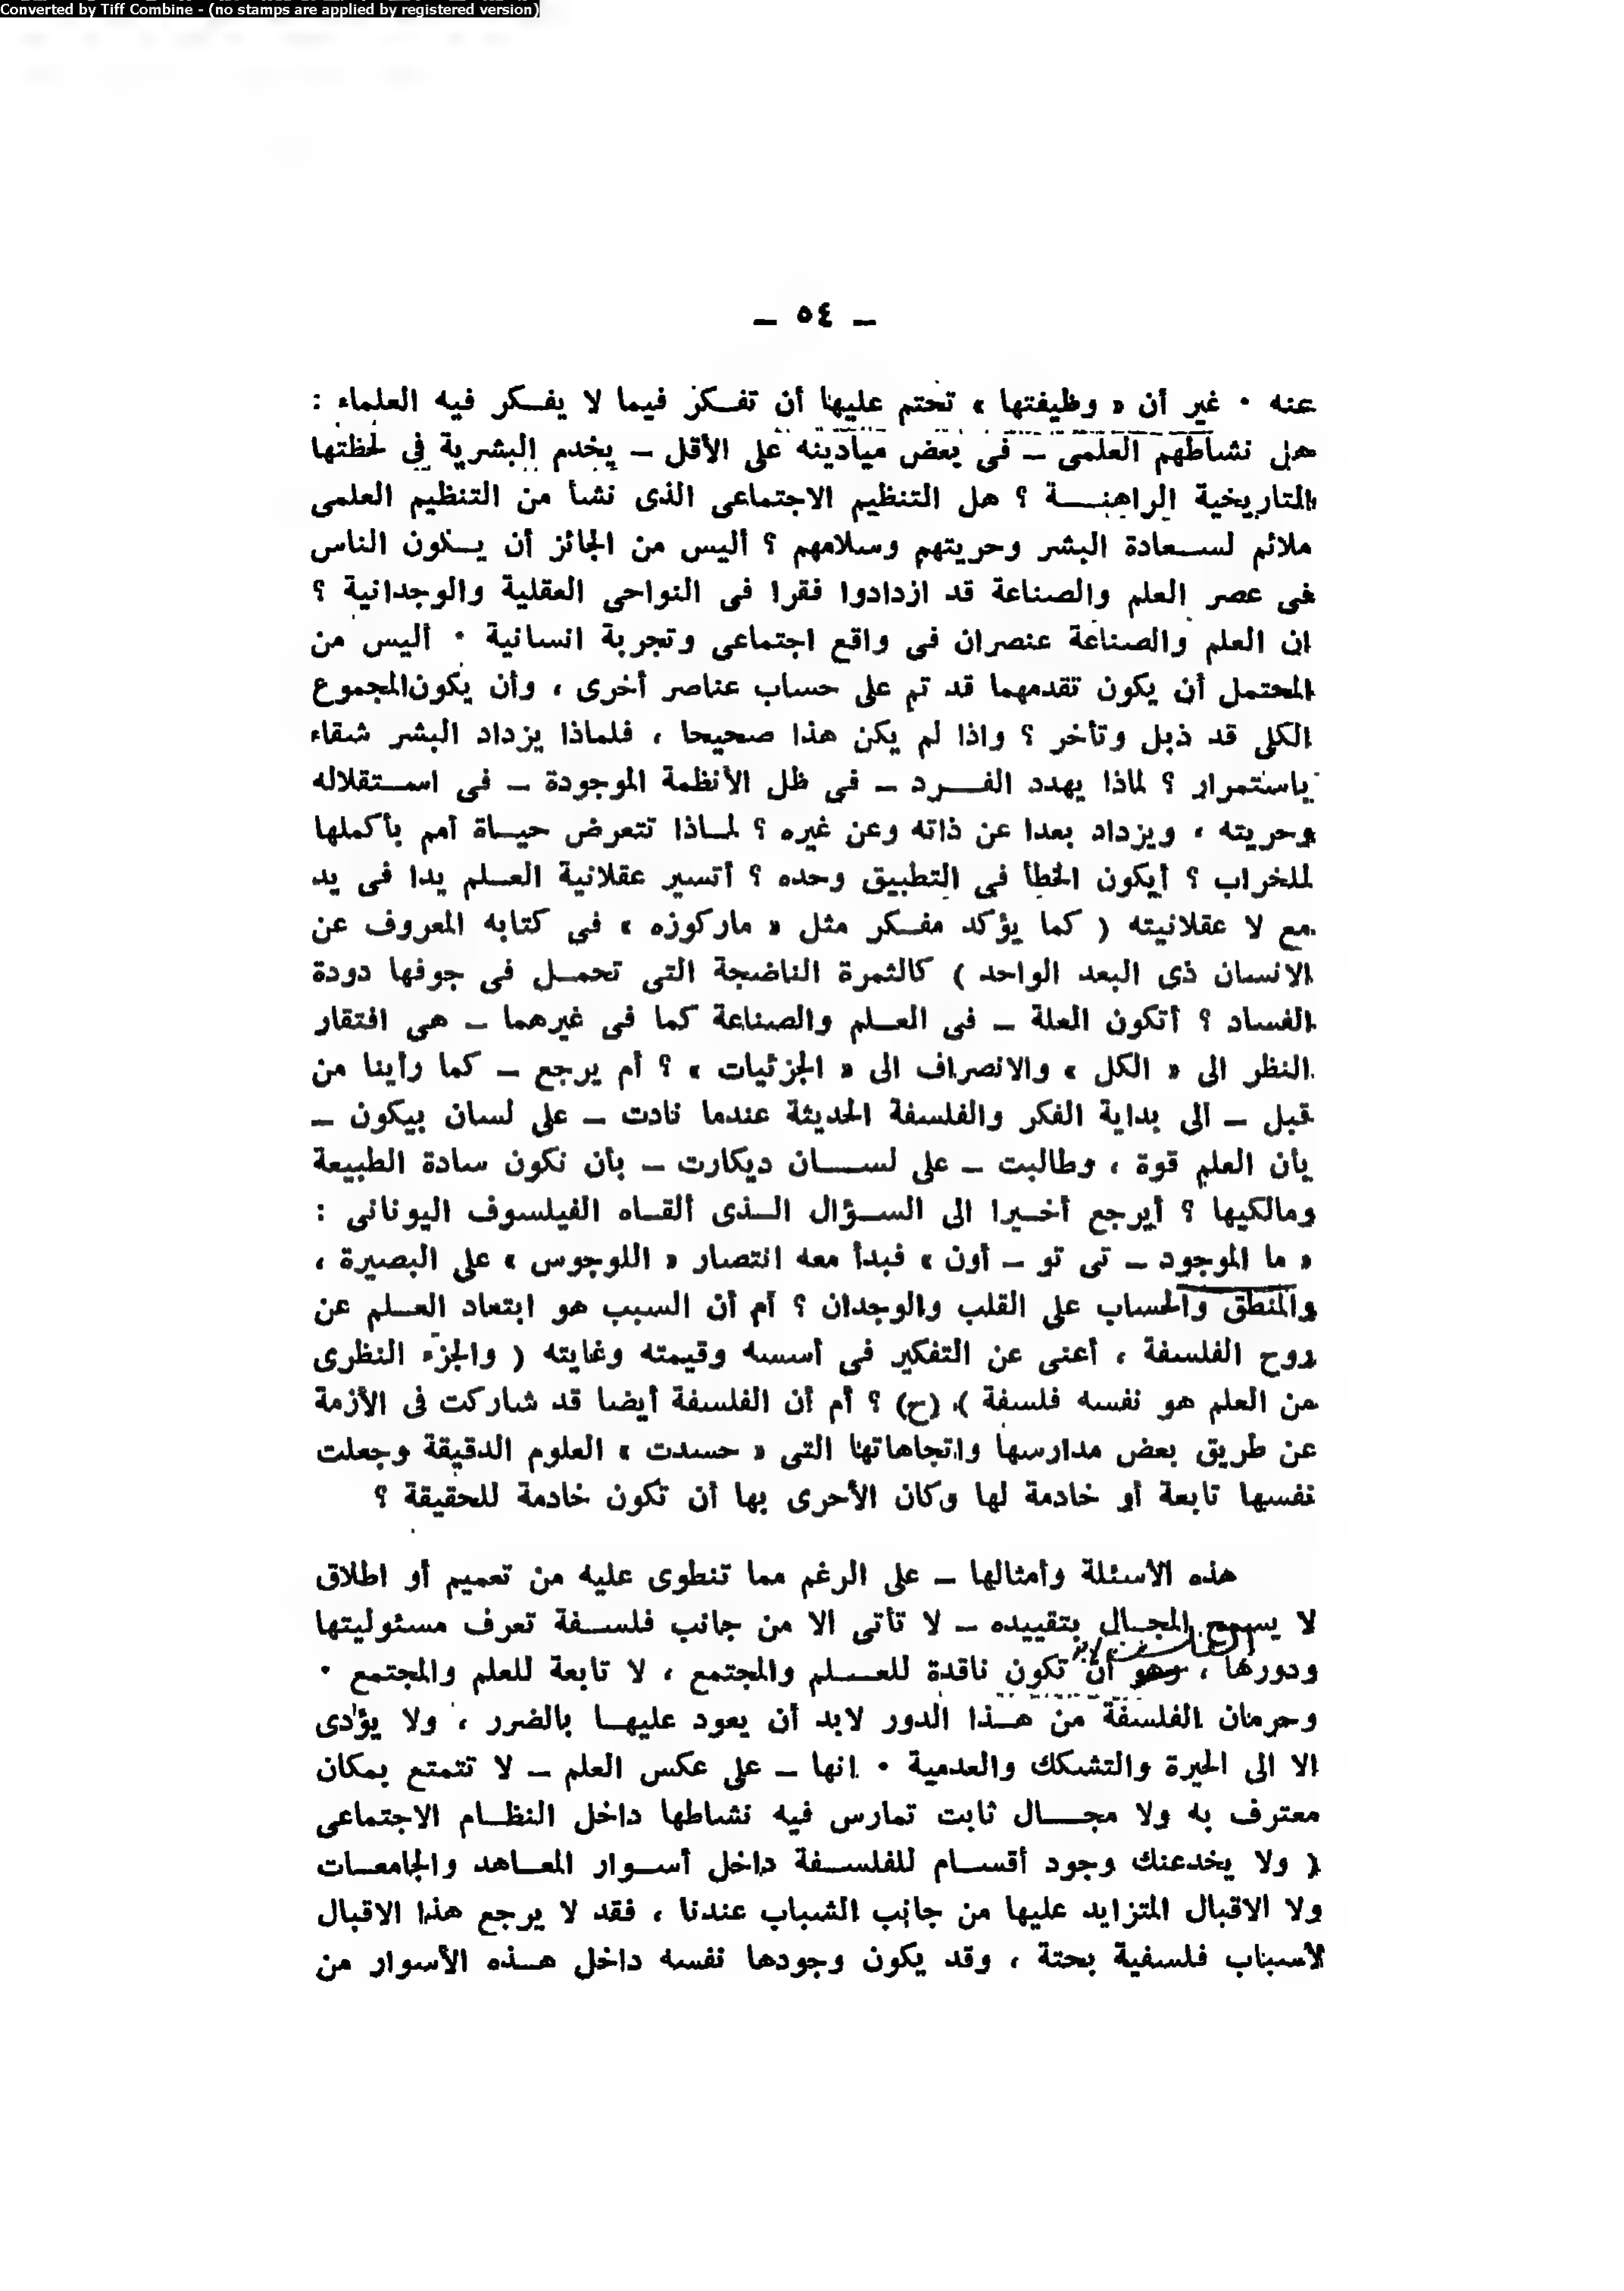 Converted by Tiff Combine - (no stamps are applied by registered version)
— ٥٤ —
عنه ٠ غير أن « وظيفتها » تحتم عليها أن تفكر فيما لا يفكر فيه العلماء :
هل نشاطهم العلمى — فى بعض ميادينه على الأقل — يخدم البشرية فى لحظتها
التاريخية الراهنة ؟ هل التنظيم الاجتماعى الذى نشأ من التنظيم العلمى
ملائم لسعادة البشر وحريتهم وسلامهم ؟ أليس من الجائز أن يكون الناس
فى عصر العلم والصناعة قد ازدادوا فقرا فى النواحى العقلية والوجدانية ؟
ان العلم والصناعة عنصران فى واقع اجتماعى وتجربة انسانية ٠ أليس من
المحتمل أن يكون تقدمهما قد تم على حساب عناصر أخرى ، وأن يكون المجموع
الكلى قد ذبل وتأخر ؟ واذا لم يكن هذا صحيحا ، فلماذا يزداد البشر شقاء
باستمرار ؟ لماذا يهدد الفرد — فى ظل الأنظمة الموجودة — فى استقلاله
وحريته ، ويزداد بعدا عن ذاته وعن غيره ؟ لماذا تتعرض حياة أمم بأكملها
للخراب ؟ أيكون الخطأ فى التطبيق وحده ؟ أتسير عقلانية العلم يدا فى يد
مع لا عقلانيته ( كما يؤكد مفكر مثل « ماركوزه » فى كتابه المعروف عن
الانسان ذى البعد الواحد ) كالثمرة الناضجة التى تحمل فى جوفها دودة
الفساد ؟ أتكون العلة — فى العلم والصناعة كما فى غيرهما — هى افتقار
النظر الى « الكل » والانصراف الى « الجزئيات » ؟ أم يرجع — كما رأينا من
قبل — الى بداية الفكر والفلسفة الحديثة عندما نادت — على لسان بيكون —
بأن العلم قوة ، وطالبت — على لسان ديكارت — بأن نكون سادة الطبيعة
ومالكيها ؟ أيرجع أخيرا الى السؤال الذى ألقاه الفيلسوف اليونانى :
« ما الموجود — تى تو — أون » فبدأ معه انتصار « اللوجوس » على البصيرة ،
والمنطق والحساب على القلب والوجدان ؟ أم أن السبب هو ابتعاد العلم عن
روح الفلسفة ، أعنى عن التفكير فى أسسه وقيمته وغايته ( والجزء النظرى
من العلم هو نفسه فلسفة ) (ح) ؟ أم أن الفلسفة أيضا قد شاركت فى الأزمة
عن طريق بعض مدارسها واتجاهاتها التى « حسدت » العلوم الدقيقة وجعلت
نفسها تابعة أو خادمة لها وكان الأحرى بها أن تكون خادمة للحقيقة ؟
هذه الأسئلة وأمثالها — على الرغم مما تنطوى عليه من تعميم أو اطلاق
لا يسمح المجال بتقييده — لا تأتى الا من جانب فلسفة تعرف مسئوليتها
ودورها ، وهو أن تكون ناقدة للعلم والمجتمع ، لا تابعة للعلم والمجتمع ٠
وحرمان الفلسفة من هذا الدور لابد أن يعود عليها بالضرر ، ولا يؤدى
الا الى الحيرة والتشكك والعدمية ٠ انها — على عكس العلم — لا تتمتع بمكان
معترف به ولا مجال ثابت تمارس فيه نشاطها داخل النظام الاجتماعى
( ولا يخدعنك وجود أقسام للفلسفة داخل أسوار المعاهد والجامعات
ولا الاقبال المتزايد عليها من جانب الشباب عندنا ، فقد لا يرجع هذا الاقبال
لأسباب فلسفية بحتة ، وقد يكون وجودها نفسه داخل هذه الأسوار من